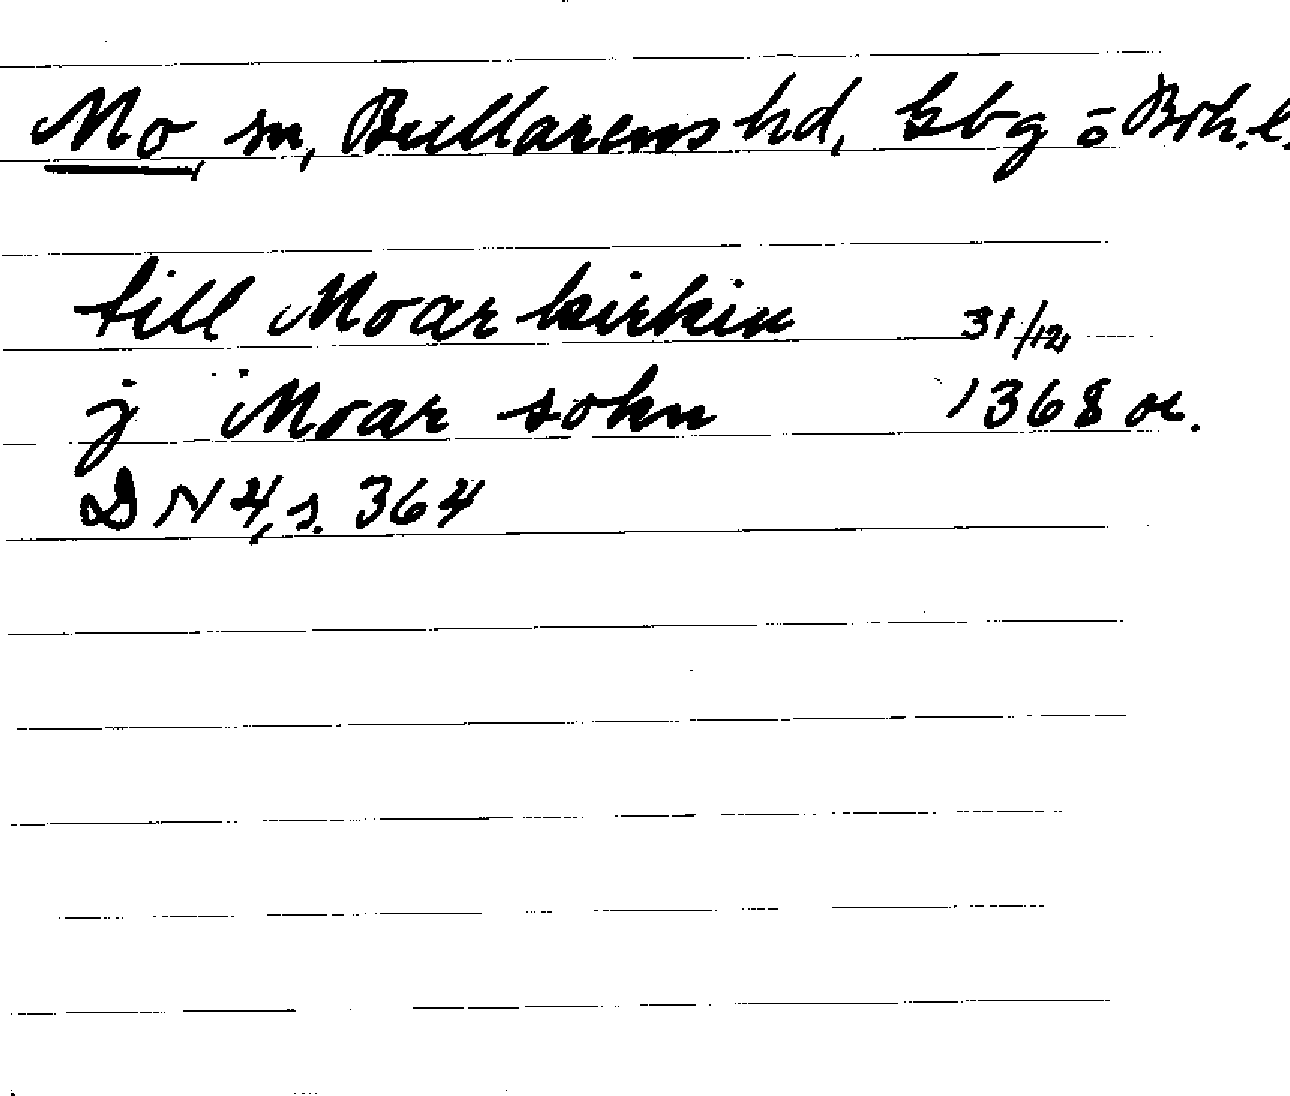 Mo, sn, Bullarens hd, Gbg o Boh.l.
till Moar kirkiu 31/12,
j Moar sokn 1368 or.
DN 4, s. 364